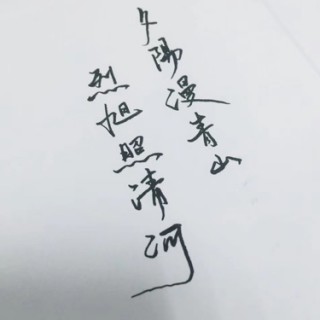 夕陽漫青山
烈旭照清河